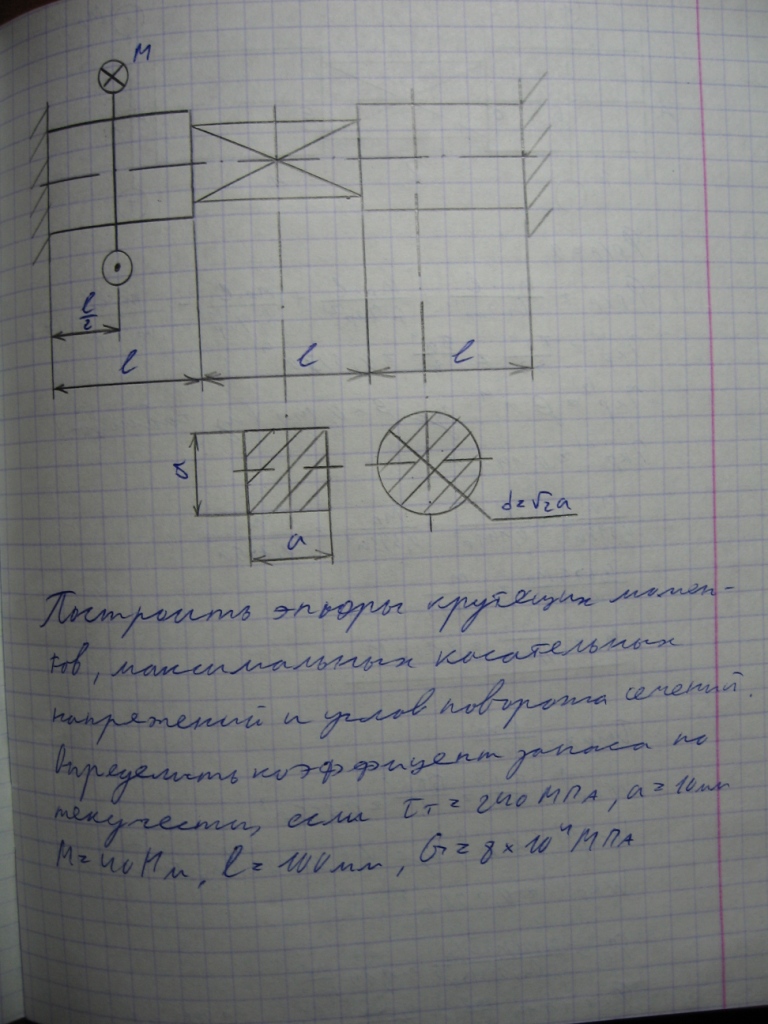 M
l/2
l
l
l
a
a
d=√2a
Построить эпюры крутящих момен-
тов, максимальных касательных
напряжений и углов поворота сечений.
Определить коэффициент запаса по
текучести, если τт = 240 МПа, a = 10мм
M = 40 Нм, l = 100мм, G = 8×10⁴МПа